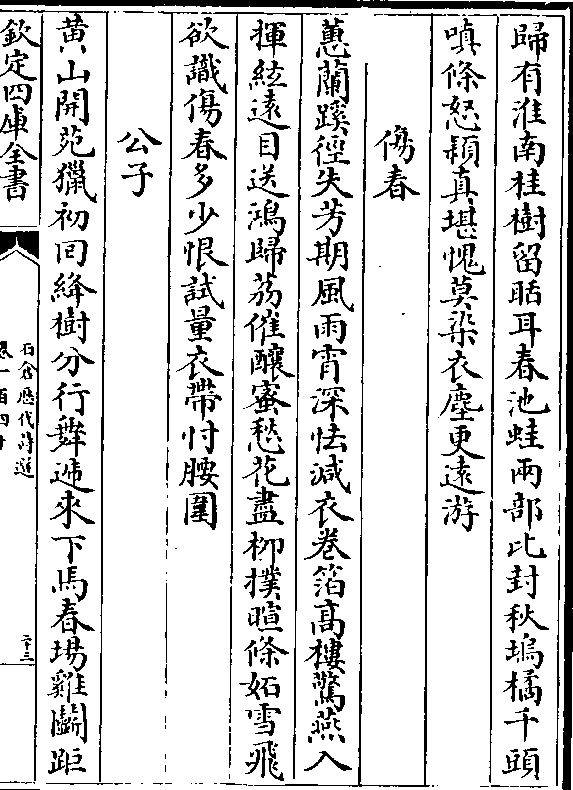 歸有淮南桂樹留聒耳春池蛙兩部比封秋塢橘千頭
嗔條怒穎真堪愧莫染衣塵更遠游
傷春
蕙蘭蹊徑失芳期風雨宵深怯減衣卷箔高樓驚燕入
揮絃遠目送鴻歸蒭催釀蜜愁花盡柳撲暄條妬雪飛
欲識傷春多少恨試量衣帶忖腰圍
公子
黄山開苑獵初回絳樹分行舞遞來下馬春場雞鬬距
欽定四庫全書
石倉歴代詩選
二十三